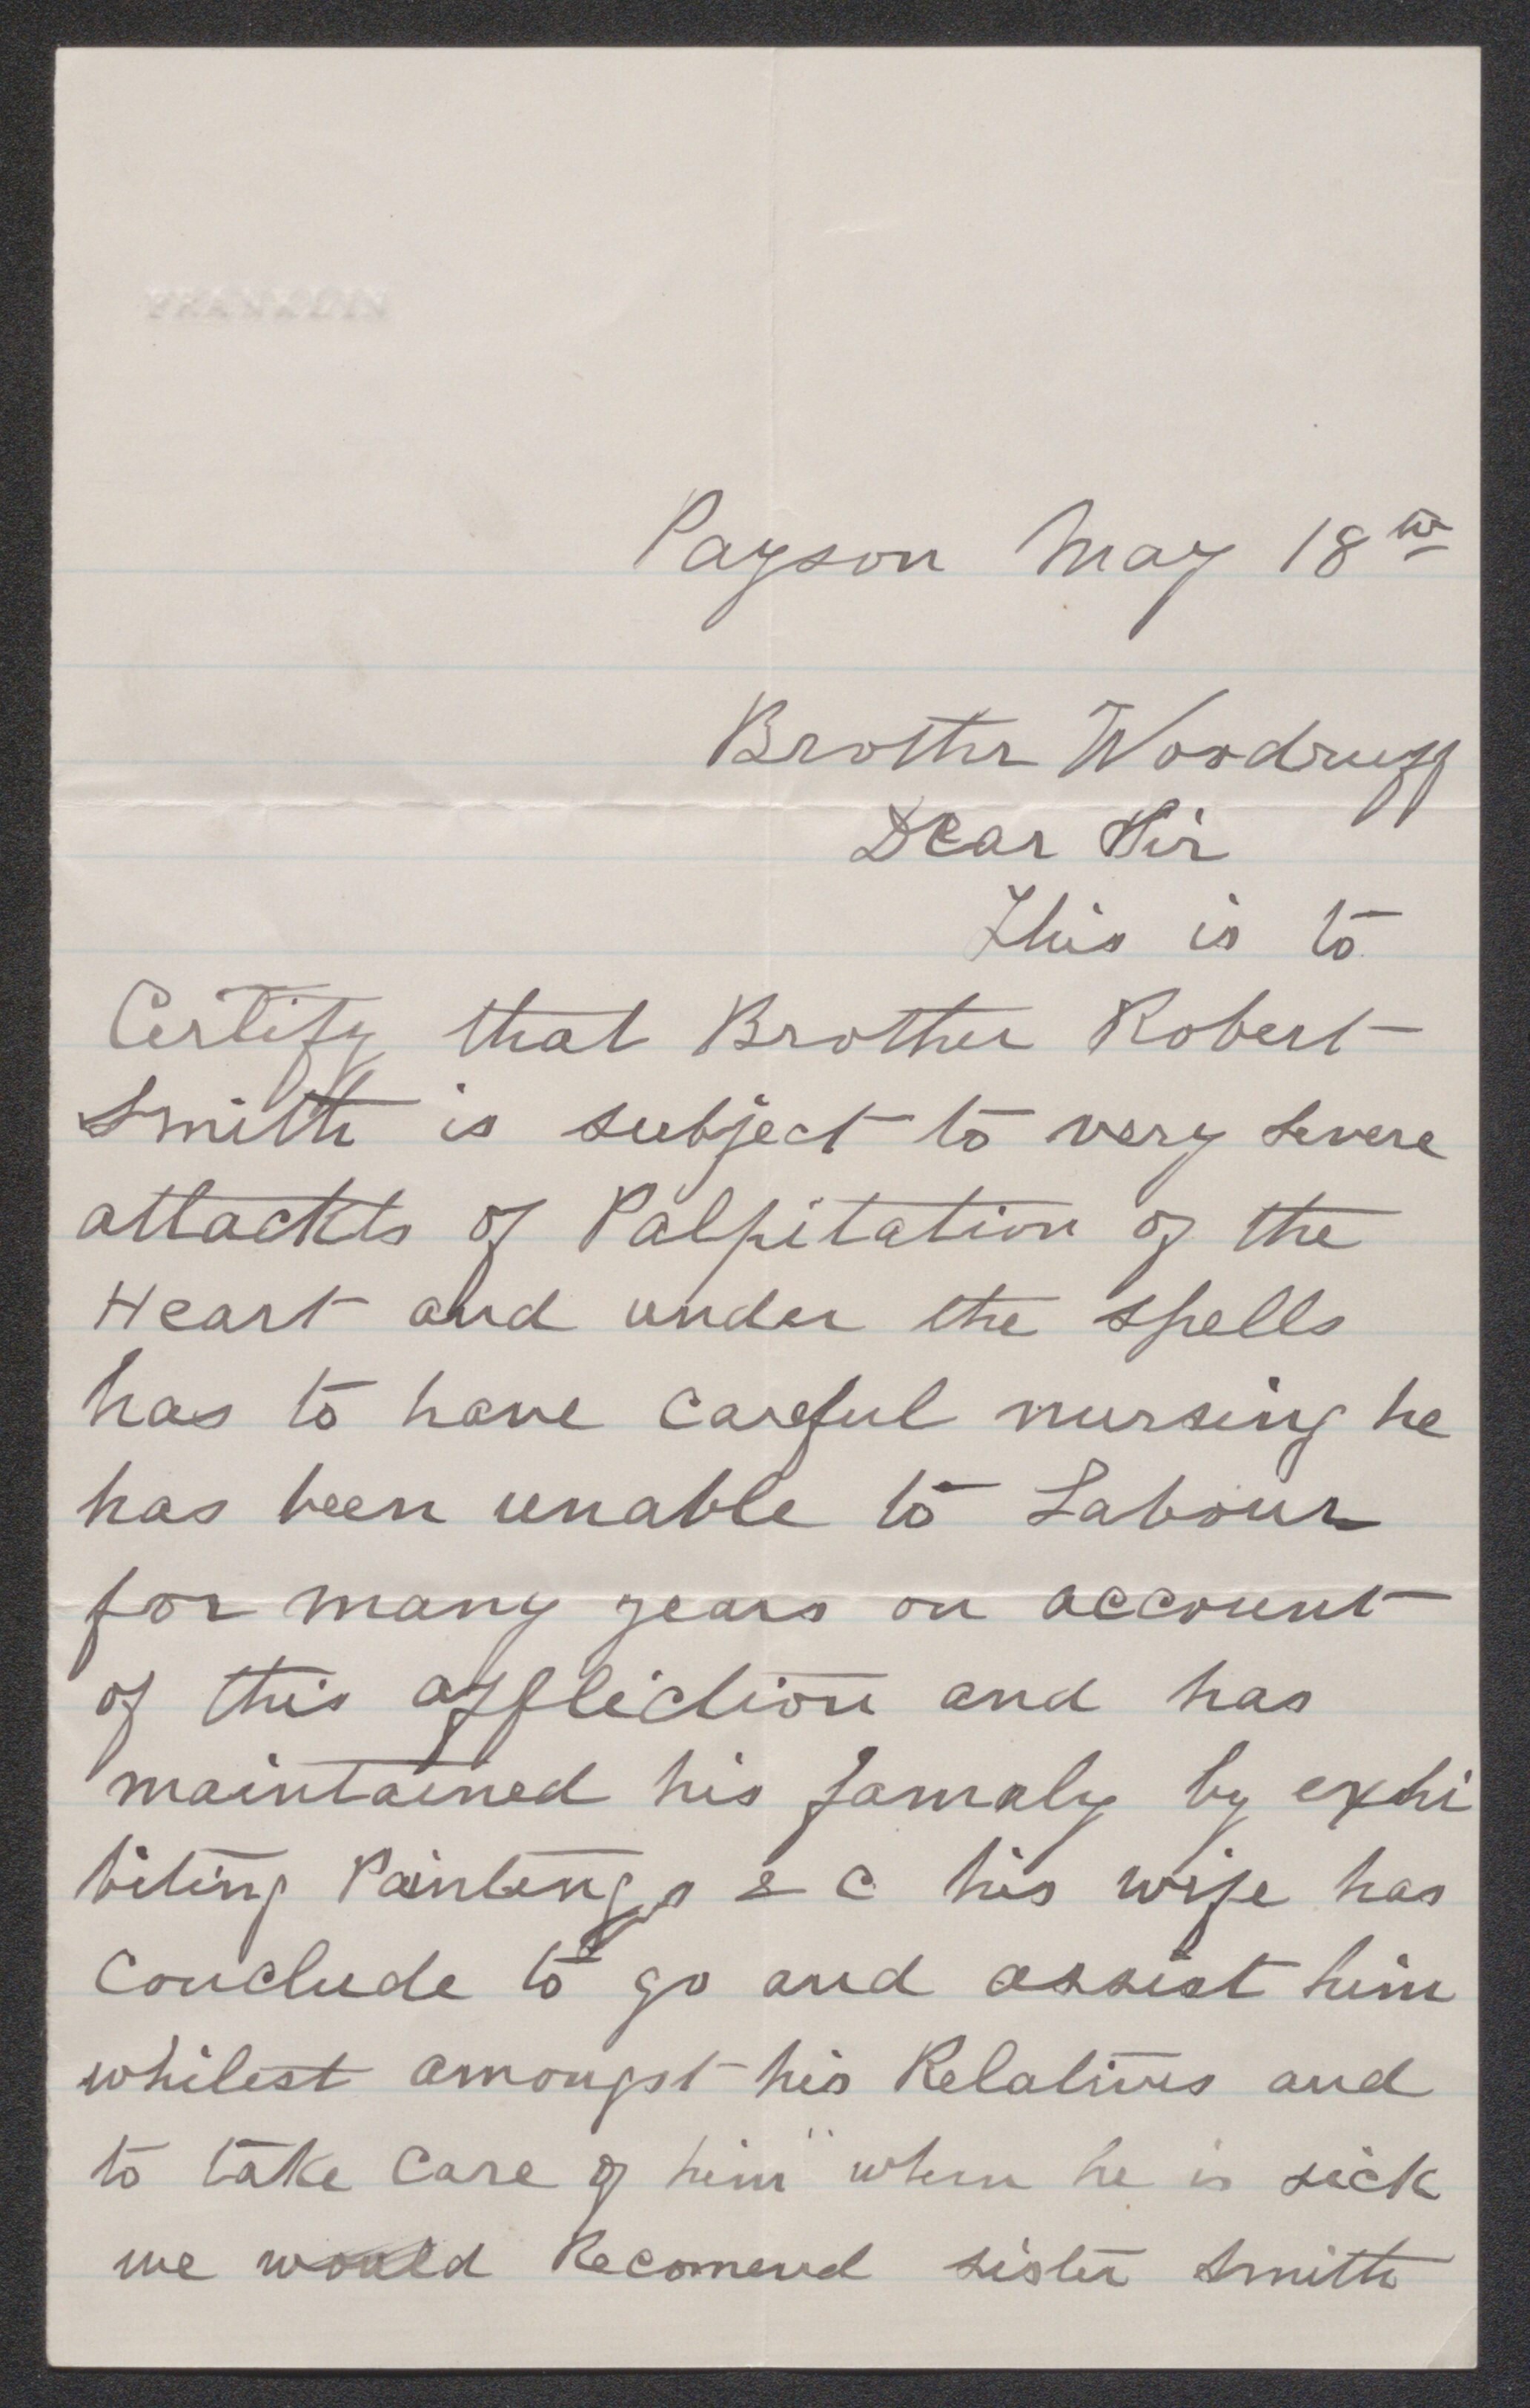 FRANKLIN
Payson May 18th
Brother Woodruff
Dear Sir
This is to
Certify that Brother Robert
Smith is subject to very severe
attackts of Palpitation of the
Heart and under the spells
has to have careful nursing he
has been unable to Labour
for many years on account
of this affliction and has
maintained his famaly by exhi
biting Paintings & C his wife has
Conclude to go and assist him
whilest amongst his Relatives and
to take care of him when he is sick
we would Recomend sister Smith